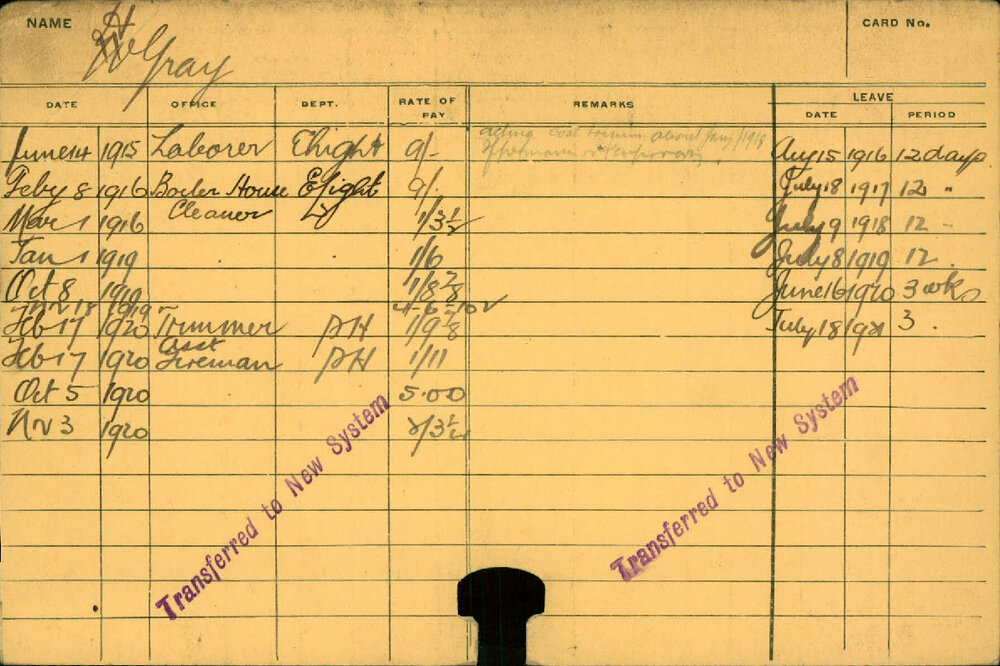 NAME
CARD No.
H Gray
DATE OFFICE DEPT. RATE OF PAY REMARKS LEAVE
DATE PERIOD
June 14 1915 Laborer E Light 9/- Acting Coal trimmer about Jany/1918 Aug 15 1916 12 days
Feby 8 1916 Boiler House E Light 9/- July 18 1917 12 "
Cleaner
Mar 1 1916 1/3½ July 9 1918 12 -
Jan 1 1919 1/6 July 8 1919 12
Oct 8 1919 1/8⅞ June 16 1920 3 wks
Feb 17 1920 Trimmer PH 1/9⅞ July 18 1921 3
Asst
Feb 17 1920 Fireman PH 1/11
Oct 5 1920 5.00
Nov 3 1920 2/3¼
Transferred to New System
Transferred to New System